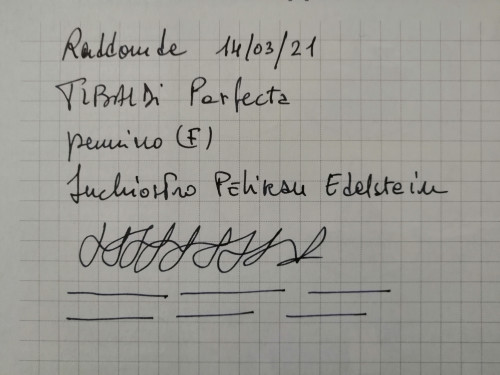 Raddomde 14/03/21
TIBALDI Perfecta
pennino (F)
Inchiostro Pelikan Edelstein